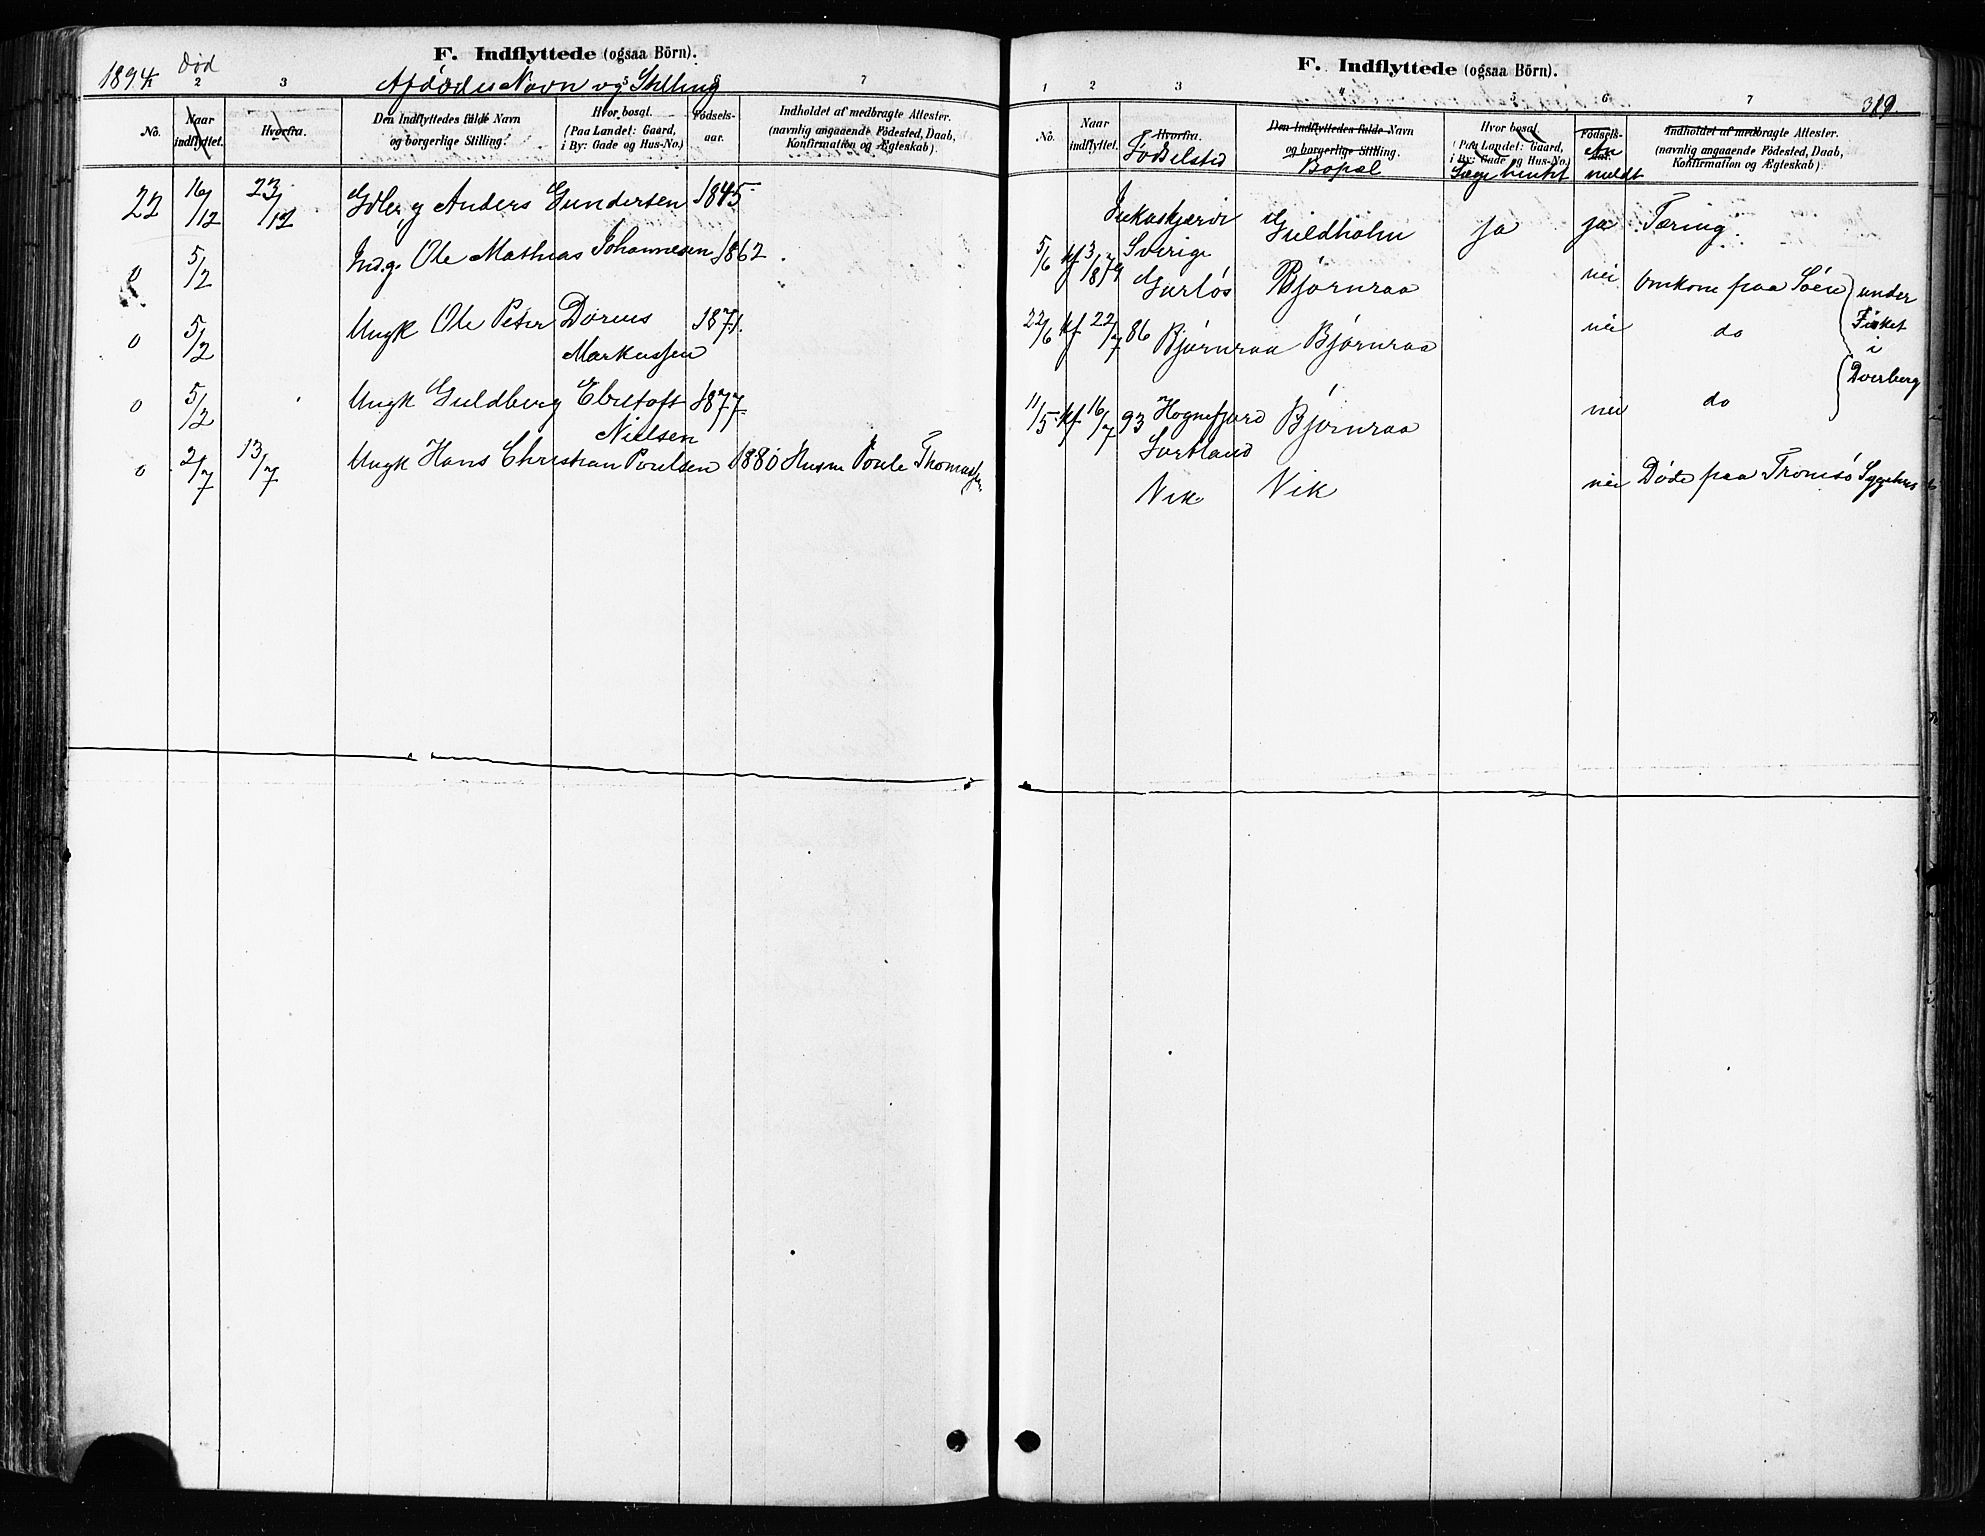 F. Indflyttede (ogsaa Börn).
1894 Död
2 3 Afdödes Navn og Stilling 5 6 7
No. Naar indflyttet. Hvorfra. Den Indflyttedes fulde Navn og borgerlige Stilling. Hvor bosat. (Paa Landet: Gaard, i By: Gade og Hus-No.) Födsels-aar. Indholdet af medbragte Attester. (navnlig angaaende Födested, Daab, Konfirmation og Ægteskab).
22 16/12 23/12 Anders Gundersen 1845
0 5/2 Indg. Ole Mathias Johannesen 1862
0 5/2 Ungk Ole Peter Dorius
Markussen 1871.
0 5/2 Ungk Guldberg Ebeltoft
Nielsen 1877
0 2/7 13/7 Ungk Hans Christian Poulsen 1880 Husm Poule Thomassen
F. Indflyttede (ogsaa Börn).
319.
1 2 3 4 5 6 7
No. Naar indflyttet. Hvorfra. Den Indflyttedes fulde Navn og borgerlige Stilling. Hvor bosat. (Paa Landet: Gaard, i By: Gade og Hus-No.) Födsels-aar. Indholdet af medbragte Attester. (navnlig angaaende Födested, Daab, Konfirmation og Ægteskab).
Födested Bopæl Læge hentet An meldt
Jukaskjærvi
Sverige Guldholm ja ja Tæring.
5/6 kf 3/8 79 Bjørnraa nei Omkom paa Söen
22/6 kf 22/7 86 Bjørnraa Bjørnraa nei do
11/5 kf 16/7 93 Hognfjord
Sortland Bjørnraa nei do
under
Fisket
i
Dverberg
Vik Vik nei Døde paa Tromsö Sygehus